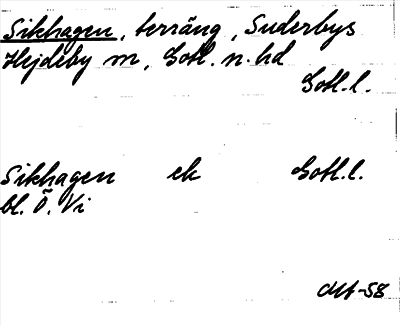 Sikhagen, terräng, Suderbys
Hejdeby m, Gotl. n. hd
Gotl. l.
Sikhagen ek Gotl. l.
bl. Ö. Vi
-58